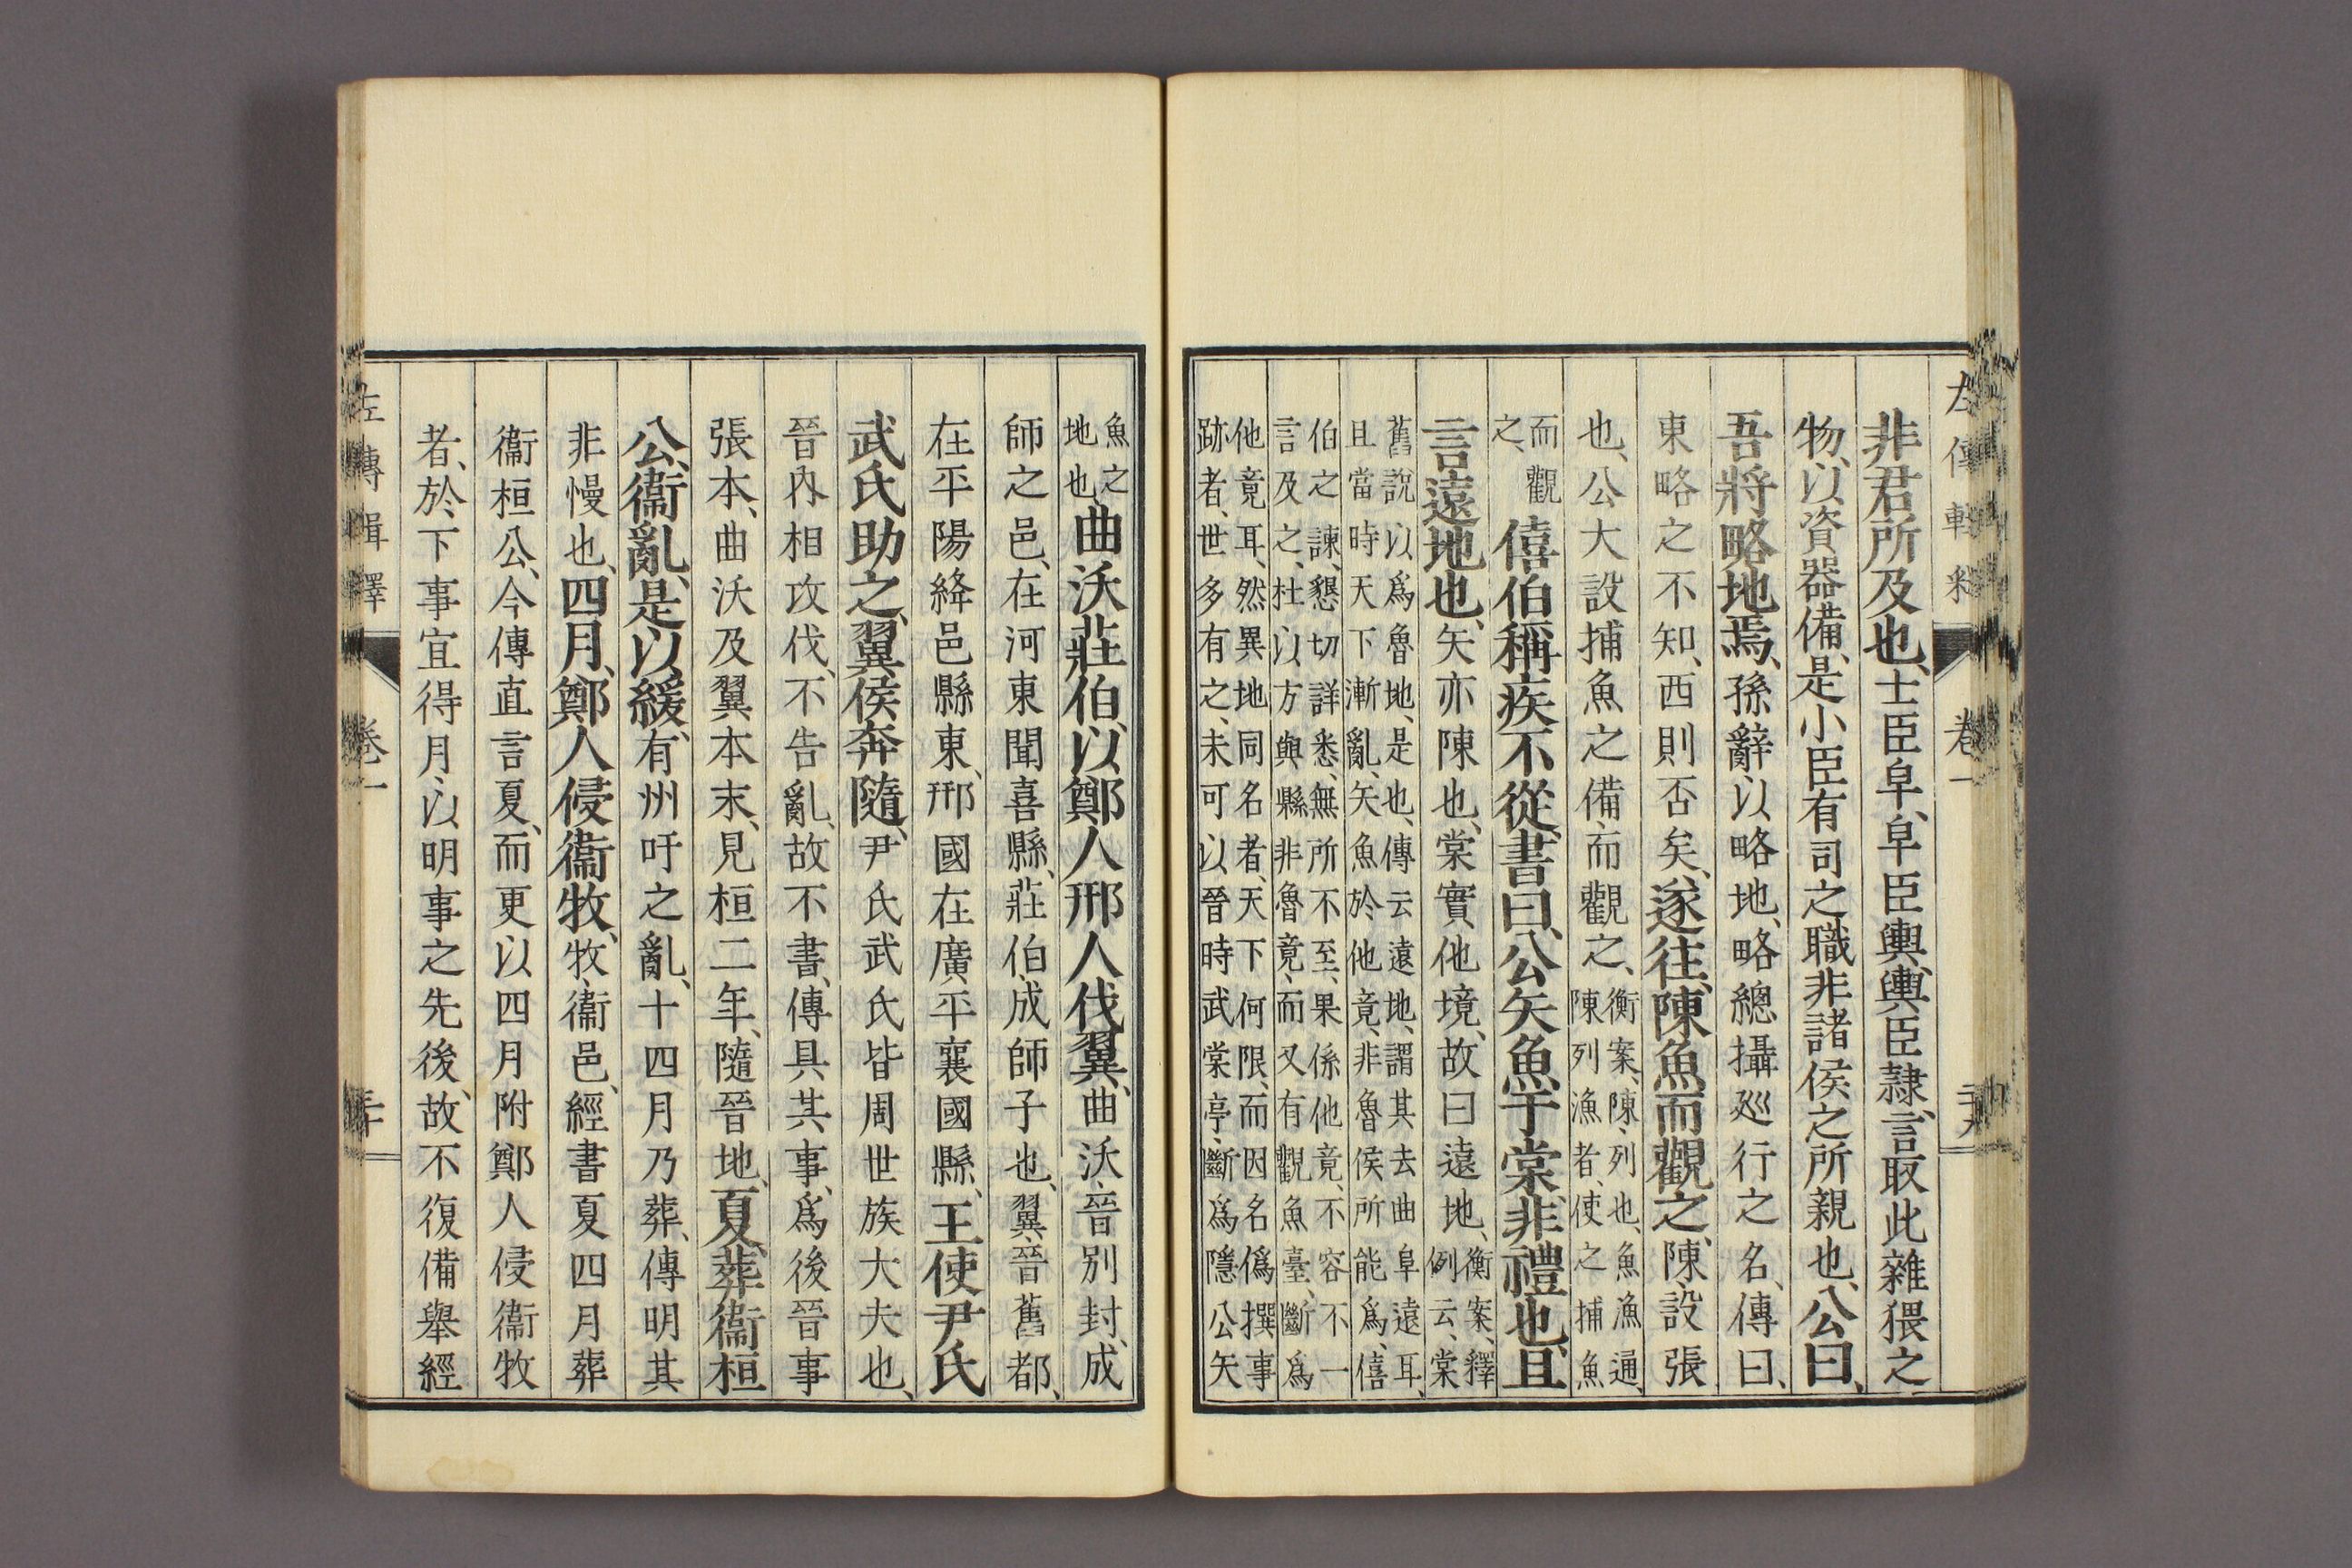 非君所及也、士臣皁、皁臣輿、輿臣隷、言取此雜猥之
物、以資器備、是小臣有司之職非諸侯之所親也、公曰、
吾將略地焉、孫辭、以略地、略總攝廵行之名、傳曰、
東略之不知、西則否矣、遂往、陳魚而觀之、陳、設張
也、公大設捕魚之備、而觀之、衡案、陳、列也、魚漁通、陳列漁者、使之捕魚
而觀之、僖伯稱疾不從、書曰、公矢魚于棠、非禮也、且
言遠地也、矢亦陳也、棠實他境、故曰遠地、衡案、釋例云、棠
舊說以爲魯地、是也、傳云遠地、謂其去曲阜遠耳、且當時天下漸亂、矢魚於他竟、非魯侯所能爲、僖
伯之諫、懇切詳悉、無所不至、果係他竟、不容不一言及之、杜以方輿縣非魯竟、而又有觀魚臺、斷爲
他竟耳、然異地同名者、天下何限、而因名僞撰事跡者、世多有之、未可以晉時武棠亭、斷爲隱公矢
卷一
魚之地也、曲沃莊伯、以鄭人邢人伐翼、曲沃、晉別封、成
師之邑、在河東聞喜縣、莊伯、成師子也、翼、晉舊都、
在平陽絳邑縣東、邢國在廣平襄國縣、王使尹氏
武氏助之、翼侯奔隨、尹氏武氏皆周世族大夫也、
晉內相攻伐、不告亂、故不書、傳具其事、爲後晉事
張本、曲沃及翼本末、見桓二年、隨晉地、夏、葬衞桓
公、衞亂、是以緩、有州吁之亂、十四月乃葬、傳明其
非慢也、四月、鄭人侵衞牧、牧、衞邑、經書夏四月葬
衞桓公、今傳直言夏、而更以四月附鄭人侵衞牧
者、於下事宜得月、以明事之先後、故不復備舉經
左傳輯釋 卷一 三十